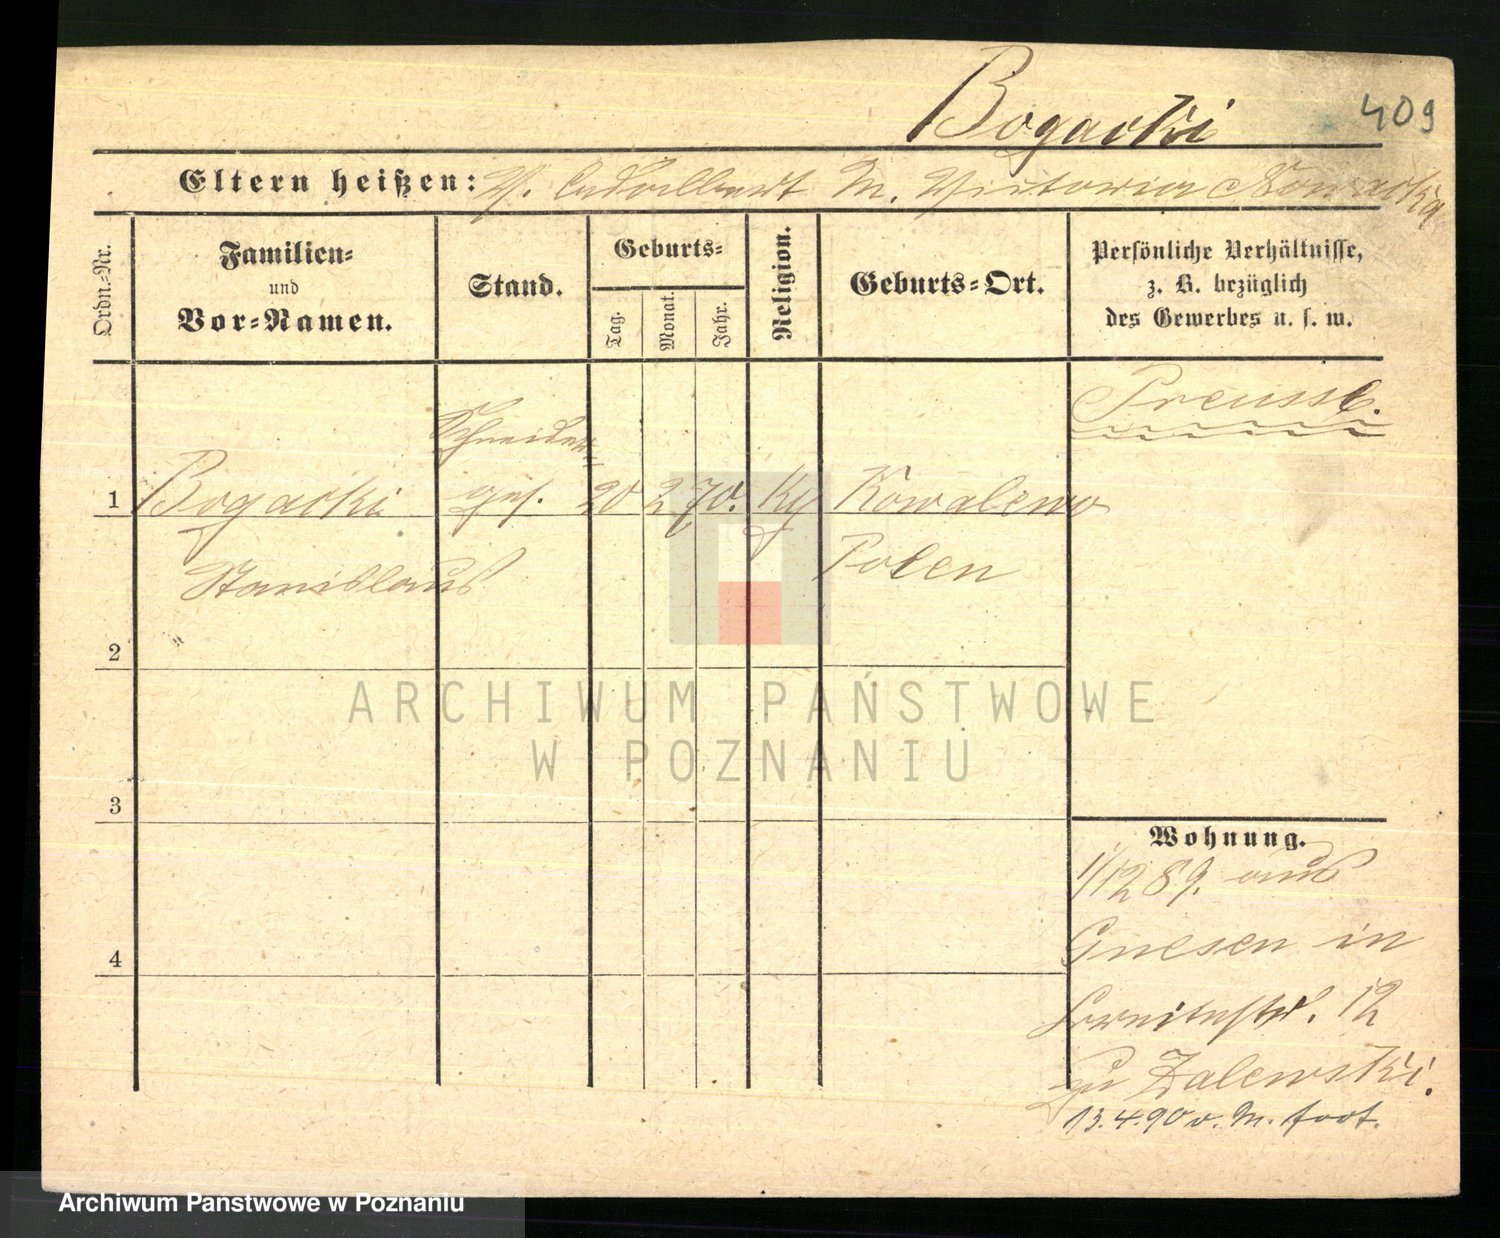 Bogacki 409
Eltern heißen: V. Adalbert M. Victoria Nowacka
Ordn.-Nr.
Familien-
und
Vor-Namen.
Stand.
Geburts-
Tag.
Monat.
Jahr.
Religion.
Geburts-Ort.
Persönliche Verhältnisse,
z. B. bezüglich
des Gewerbes u. s. w.
Preusse.
Schneider-
1 Bogacki ges. 20 2 70. Kowalewo
Stanislaus Polen
2
3
4
Wohnung.
1/12 89. aus
Gnesen in
Breitestr. 12
zu Zalewski.
13.4.90 v. M. fort.
ARCHIWUM PAŃSTWOWE
W POZNANIU
Archiwum Państwowe w Poznaniu